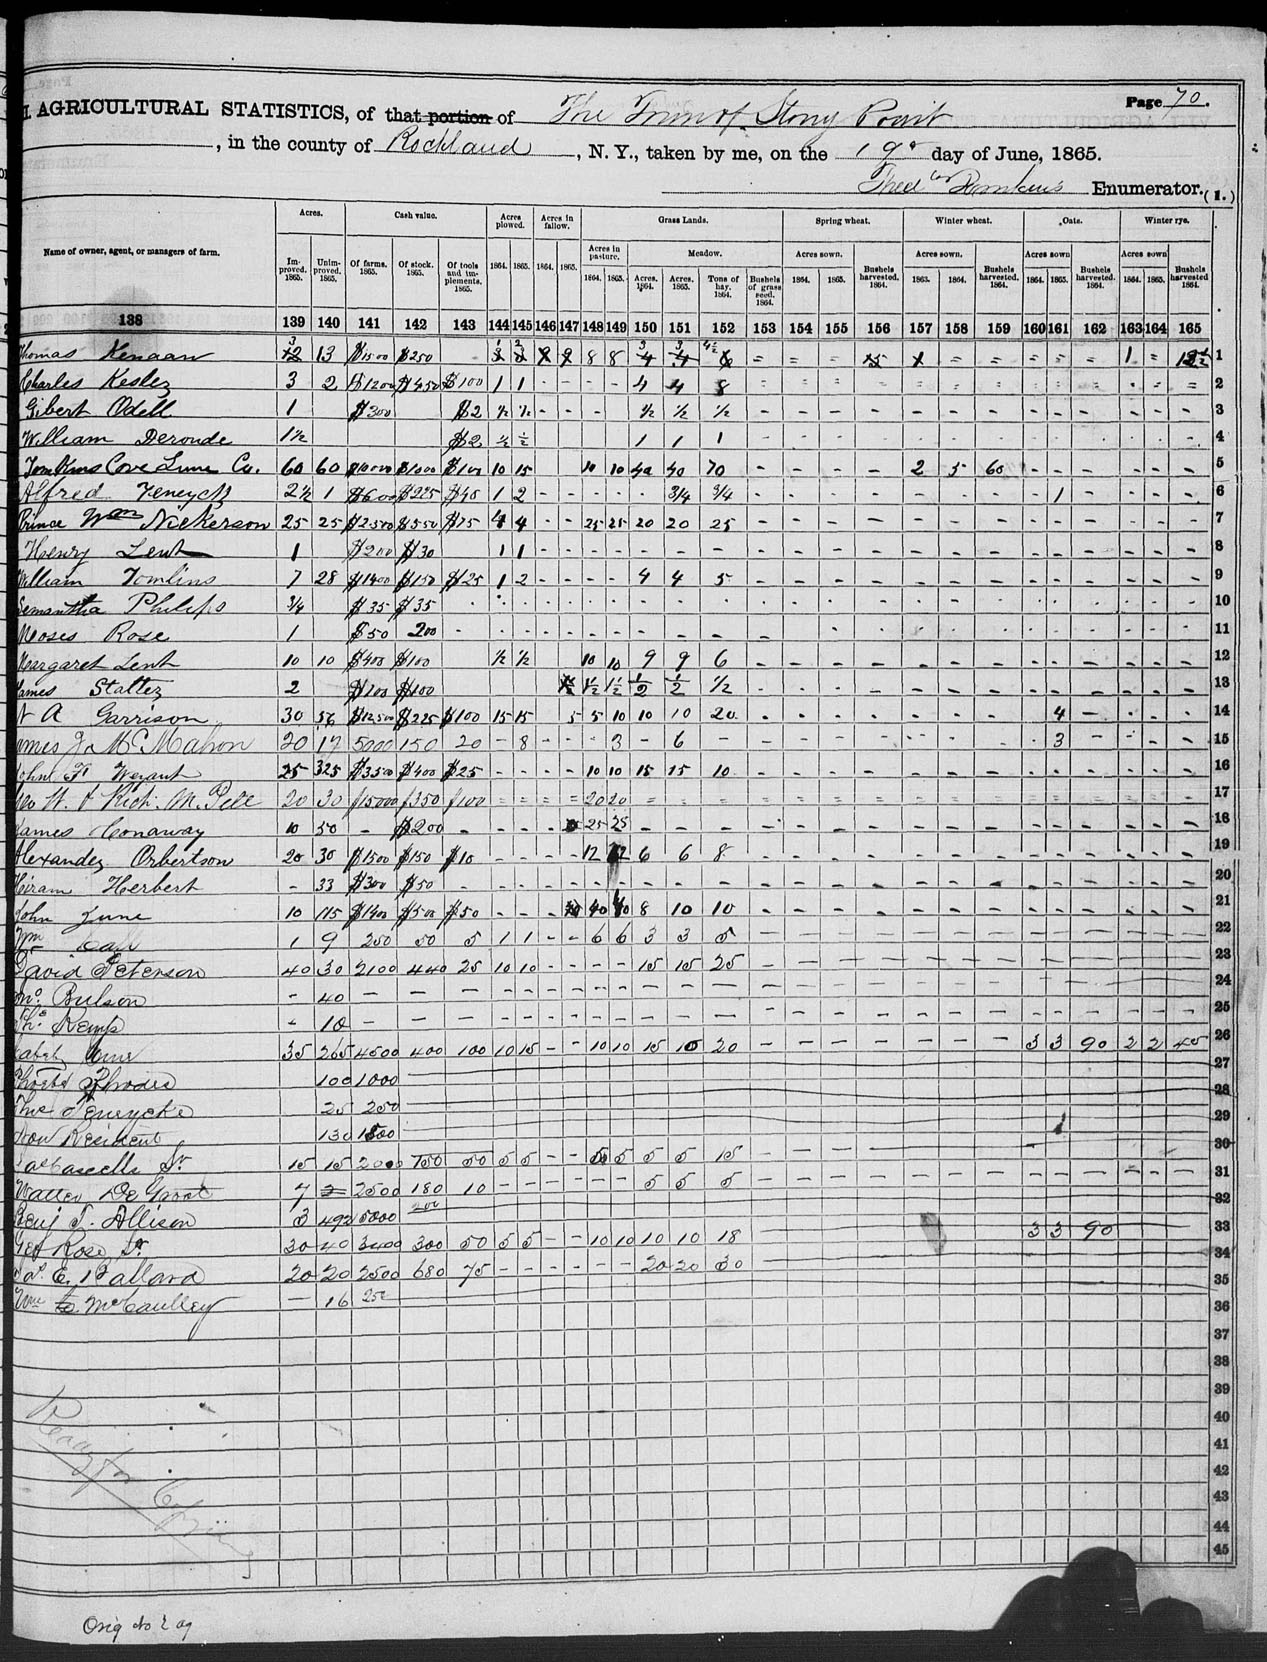 Page 70.
AGRICULTURAL STATISTICS, of that portion of The Town of Stony Point
, in the county of Rockland, N. Y., taken by me, on the 19 day of June, 1865.
Enumerator. (1.)
Acres. Cash value. Acres plowed. Acres in fallow. Grass Lands. Spring wheat. Winter wheat. Oats. Winter rye.
Name of owner, agent, or managers of farm. Improved. 1865. Unimproved. 1865. Of farms. 1865. Of stock. 1865. Of tools and implements. 1865. 1864. 1865. 1864. 1865. Acres in pasture. 1864. 1865. Meadow. Acres. 1864. Acres. 1865. Tons of hay. 1864. Bushels of grass seed. 1864. Acres sown. 1864. 1865. Bushels harvested. 1864. Acres sown. 1863. 1864. Bushels harvested. 1864. Acres sown 1864. 1865. Bushels harvested. 1864. Acres sown 1863. 1864. Bushels harvested 1864.
138 139 140 141 142 143 144 145 146 147 148 149 150 151 152 153 154 155 156 157 158 159 160 161 162 163 164 165
Thomas Kenaan 3 13 $1500 $250 1 2 8 8 3 3 4½ = = = = = = = = = 1 = 1
Charles Kesler 3 2 $1200 $450 $100 1 1 - - - - 4 4 8 = = = = = = = = = = 2
Gibert Odell 1 $300 $2 ½ ½ - - - ½ ½ ½ - - - - - - - - - - - - - 3
William Deronde 1½ $2 ½ ½ 1 1 1 - - - - - - - - - - - - - 4
Tomkins Cove Lime Co. 60 60 $1000 $100 10 15 10 10 40 40 70 - - - - 2 5 60 - - - - - - 5
Alfred Teneyck 2½ 1 $600 $225 $40 1 2 - - - - - 3/4 3/4 - - - - - - - - 1 - - - - 6
Prince Wm Nickerson 25 25 $2500 $550 $75 4 4 - - 25 25 20 20 25 - - - - - - - - - - - - - 7
Henry Lent 1 $200 $30 1 1 - - - - - - - - - - - - - - - - - - - - 8
William Tomlins 7 28 $1400 $150 $25 1 2 - - - - 4 4 5 - - - - - - - - - - - - - 9
Semantha Philips 3/4 $35 $35 - - - - - - - - - - - - - - - - - - - - - - 10
Moses Rose 1 $50 200 - - - - - - - - - - - - - - - - - - - - - - - 11
Margaret Lent 10 10 $400 $100 ½ ½ 10 10 9 9 6 - - - - - - - - - - - - - 12
James Statter 2 $100 $100 1½ 1½ ½ ½ ½ - - - - - - - - - - - - - 13
A Garrison 30 56 $12500 $225 $100 15 15 5 5 10 10 10 20 - - - - - - - - 4 - - - - 14
James J. McMahon 20 17 5000 150 20 - 8 - - - 3 - 6 - - - - - - - - - 3 - - - - 15
John F Weyant 25 325 $3500 $400 $25 - - - - 10 10 15 15 10 - - - - - - - - - - - - - 16
Geo W. & Rich. M. Pell 20 30 $15000 $350 $100 = = = = 20 20 = = = = = = = = = = = = = = = = 17
James Conaway 10 50 - $200 - - - - 25 25 - - - - - - - - - - - - - - - - 18
Alexander Orbertson 20 30 $1500 $150 $10 - - - - 12 12 6 6 8 - - - - - - - - - - - - - 19
Hiram Herbert - 33 $300 $50 - - - - - - - - - - - - - - - - - - - - - - - 20
John June 10 115 $1400 $500 $50 - - - 40 40 8 10 10 - - - - - - - - - - - - - 21
Wm Call 1 9 250 50 5 1 1 - - 6 6 3 3 5 - - - - - - - - - - - - - 22
David Peterson 40 30 2100 440 25 10 10 - - - - 15 15 25 - - - - - - - - - - - - - 23
Bulson - 40 - - - - - - - - - - - - - - - - - - - - - - - - - 24
Kemp - 10 - - - - - - - - - - - - - - - - - - - - - - - - - 25
35 265 4500 400 100 10 15 - - 10 10 15 15 20 - - - - - - - 3 3 90 2 2 45 26
Phoebe Rhodes 100 1000 27
Teneycke 25 250 28
Non Resident 130 1500 29
Sr 15 15 2000 750 50 5 5 - - 5 5 5 5 15 - - - - - - - - - - - - - 30
Walter De Groat 7 2500 180 10 - - - - - - 5 5 5 - - - - - - - - - - - - - 31
Benj J. Allison 3 492 5000 200 32
Geo Rose Sr 30 40 3400 300 50 5 5 - - 10 10 10 10 18 3 3 90 33
E. Ballard 20 20 2500 680 75 - - - - - - 20 20 30 34
Wm McCaulley - 16 250 35
36
37
38
39
40
41
42
43
44
45
Ready for Copying
Orig No 2 ag